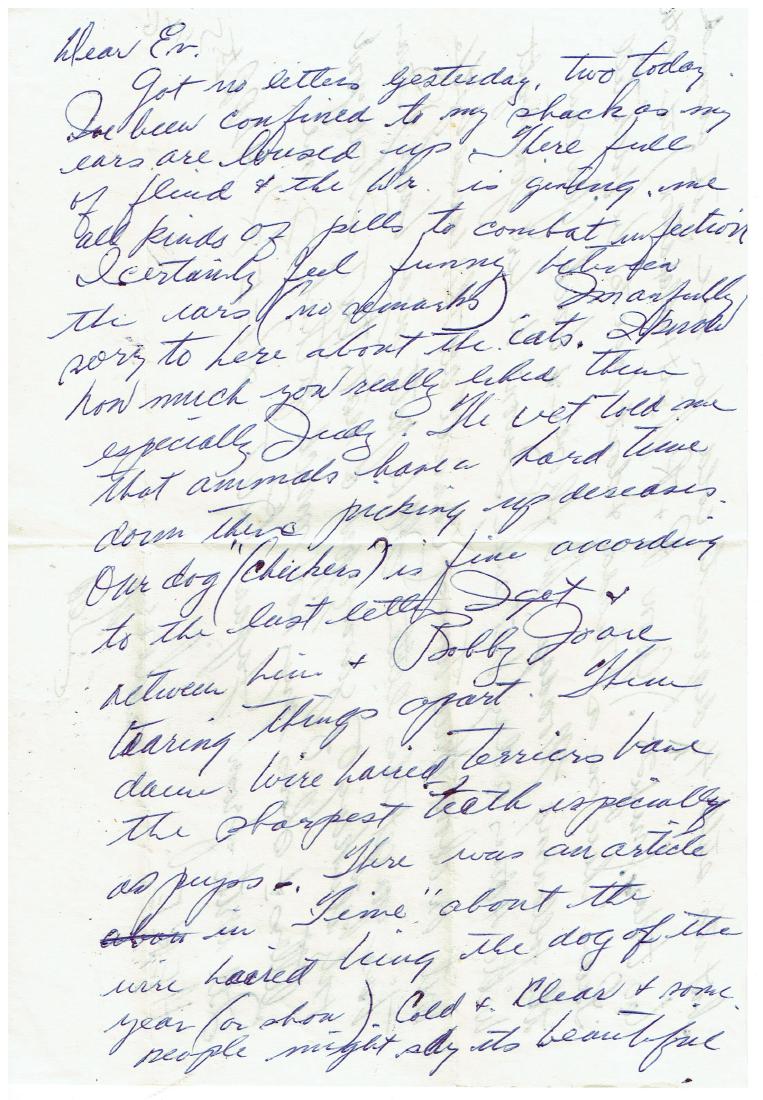 Dear Ev.
Got no letters yesterday, two today.
I've been confined to my shack as my
ears are loused up. There full
of fluid & the Dr. is giving me
all kinds of pills to combat infection
I certainly feel funny between
the ears (no remarks) I'm awfully
sorry to here about the cats. I know
how much you really liked them
especially Judy. The vet told me
that animals have a hard time
down there picking up diseases.
Our dog "(Checkers") is fine according
to the last letter I got &
between him & Bobby Joe are
tearing things apart. Them
damn wire haired terriers have
the sharpest teeth especially
as pups. There was an article
in "Time" about the
wire haired being the dog of the
year (or show). Cold & Clear & some
people might say its beautiful